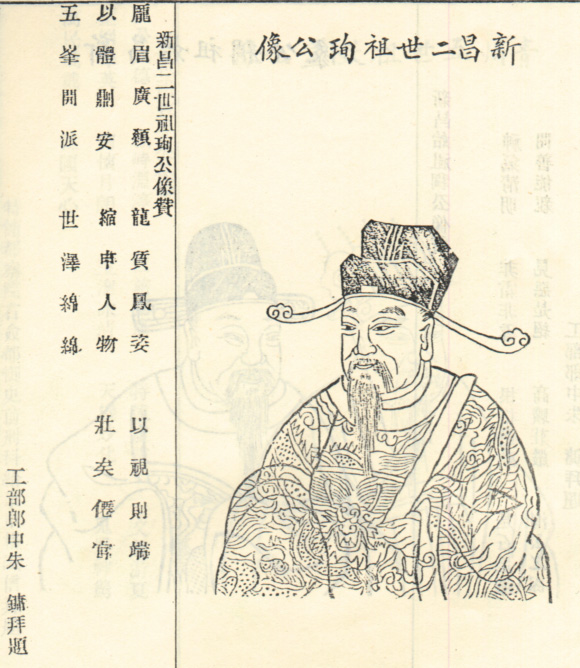 新昌二世祖珣公像
新昌二世祖珣公像贊
龎眉廣顙 龍質鳳姿 以視則端
以體則安 縮申人物 壯矣僊官
五峯開派 世澤綿綿
工部郎中朱 鏞拜題